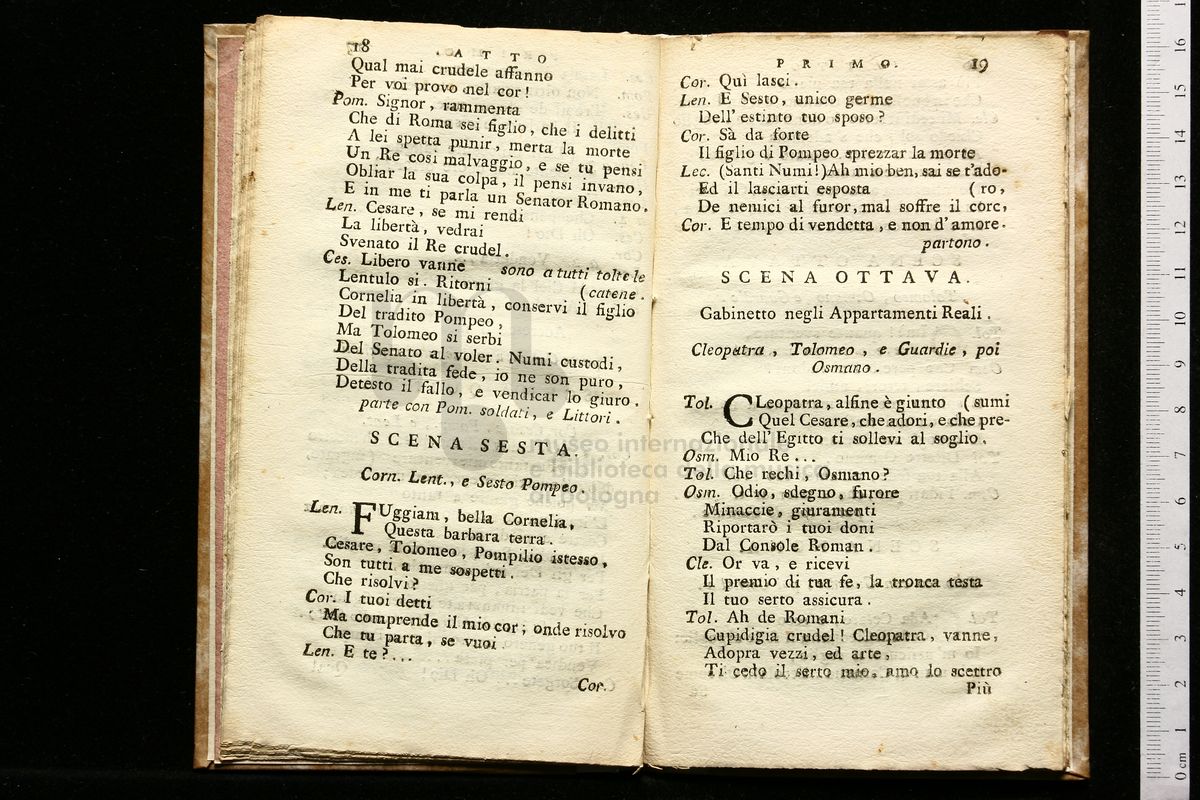 18
ATTO
Qual mai crudele affanno
Per voi provo nel cor!
Pom. Signor, rammenta
Che di Roma sei figlio, che i delitti
A lei spetta punir, merta la morte
Un Re così malvaggio, e se tu pensi
Obliar la sua colpa, il pensi invano,
E in me ti parla un Senator Romano.
Len. Cesare, se mi rendi
La libertà, vedrai
Svenato il Re crudel.
Ces. Libero vanne sono a tutti tolte le
Lentulo sì. Ritorni (catene.
Cornelia in libertà, conservi il figlio
Del tradito Pompeo,
Ma Tolomeo si serbi
Del Senato al voler. Numi custodi,
Della tradita fede, io ne son puro,
Detesto il fallo, e vendicar lo giuro.
parte con Pom. soldati, e Littori.
SCENA SESTA.
Corn. Lent., e Sesto Pompeo.
Len. FUggiam, bella Cornelia,
Questa barbara terra.
Cesare, Tolomeo, Pompilio istesso,
Son tutti a me sospetti.
Che risolvi?
Cor. I tuoi detti
Ma comprende il mio cor; onde risolvo
Che tu parta, se vuoi
Len. E te?...
Cor.
PRIMO. 19
Cor. Quì lasci.
Len. E Sesto, unico germe
Dell' estinto tuo sposo?
Cor. Sà da forte
Il figlio di Pompeo sprezzar la morte
Lec. (Santi Numi!) Ah mio ben, sai se t'ado-
Ed il lasciarti esposta (ro,
De nemici al furor, mal soffre il core,
Cor. E tempo di vendetta, e non d'amore.
partono.
SCENA OTTAVA.
Gabinetto negli Appartamenti Reali.
Cleopatra, Tolomeo, e Guardie, poi
Osmano.
Tol. CLeopatra, alfine è giunto (sumi
Quel Cesare, che adori, e che pre-
Che dell' Egitto ti sollevi al soglio.
Osm. Mio Re...
Tol. Che rechi, Osmano?
Osm. Odio, sdegno, furore
Minaccie, giuramenti
Riportarò i tuoi doni
Dal Console Roman.
Cle. Or va, e ricevi
Il premio di tua fe, la tronca testa
Il tuo serto assicura.
Tol. Ah de Romani
Cupidigia crudel! Cleopatra, vanne,
Adopra vezzi, ed arte,
Ti cedo il serto mio, amo lo scettro
Più
museo internazionale
e biblioteca della musica
di bologna